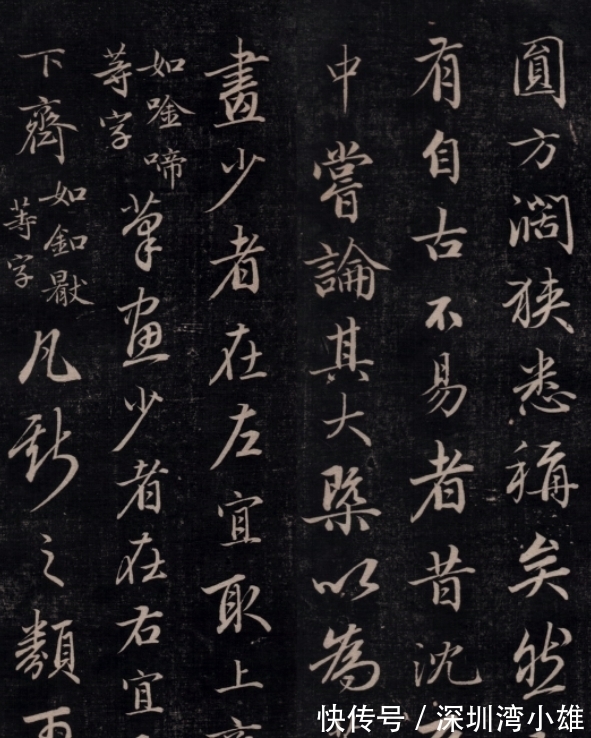 圓方濶狹悉稱矣然
有自古不易者昔沈
中嘗論其大槩以為
畫少者在左宜取上
如唫啼
等字
筆畫少者在右宜
下齊
如釦
等字
凡斯之類
快传号 / 深圳湾小雄